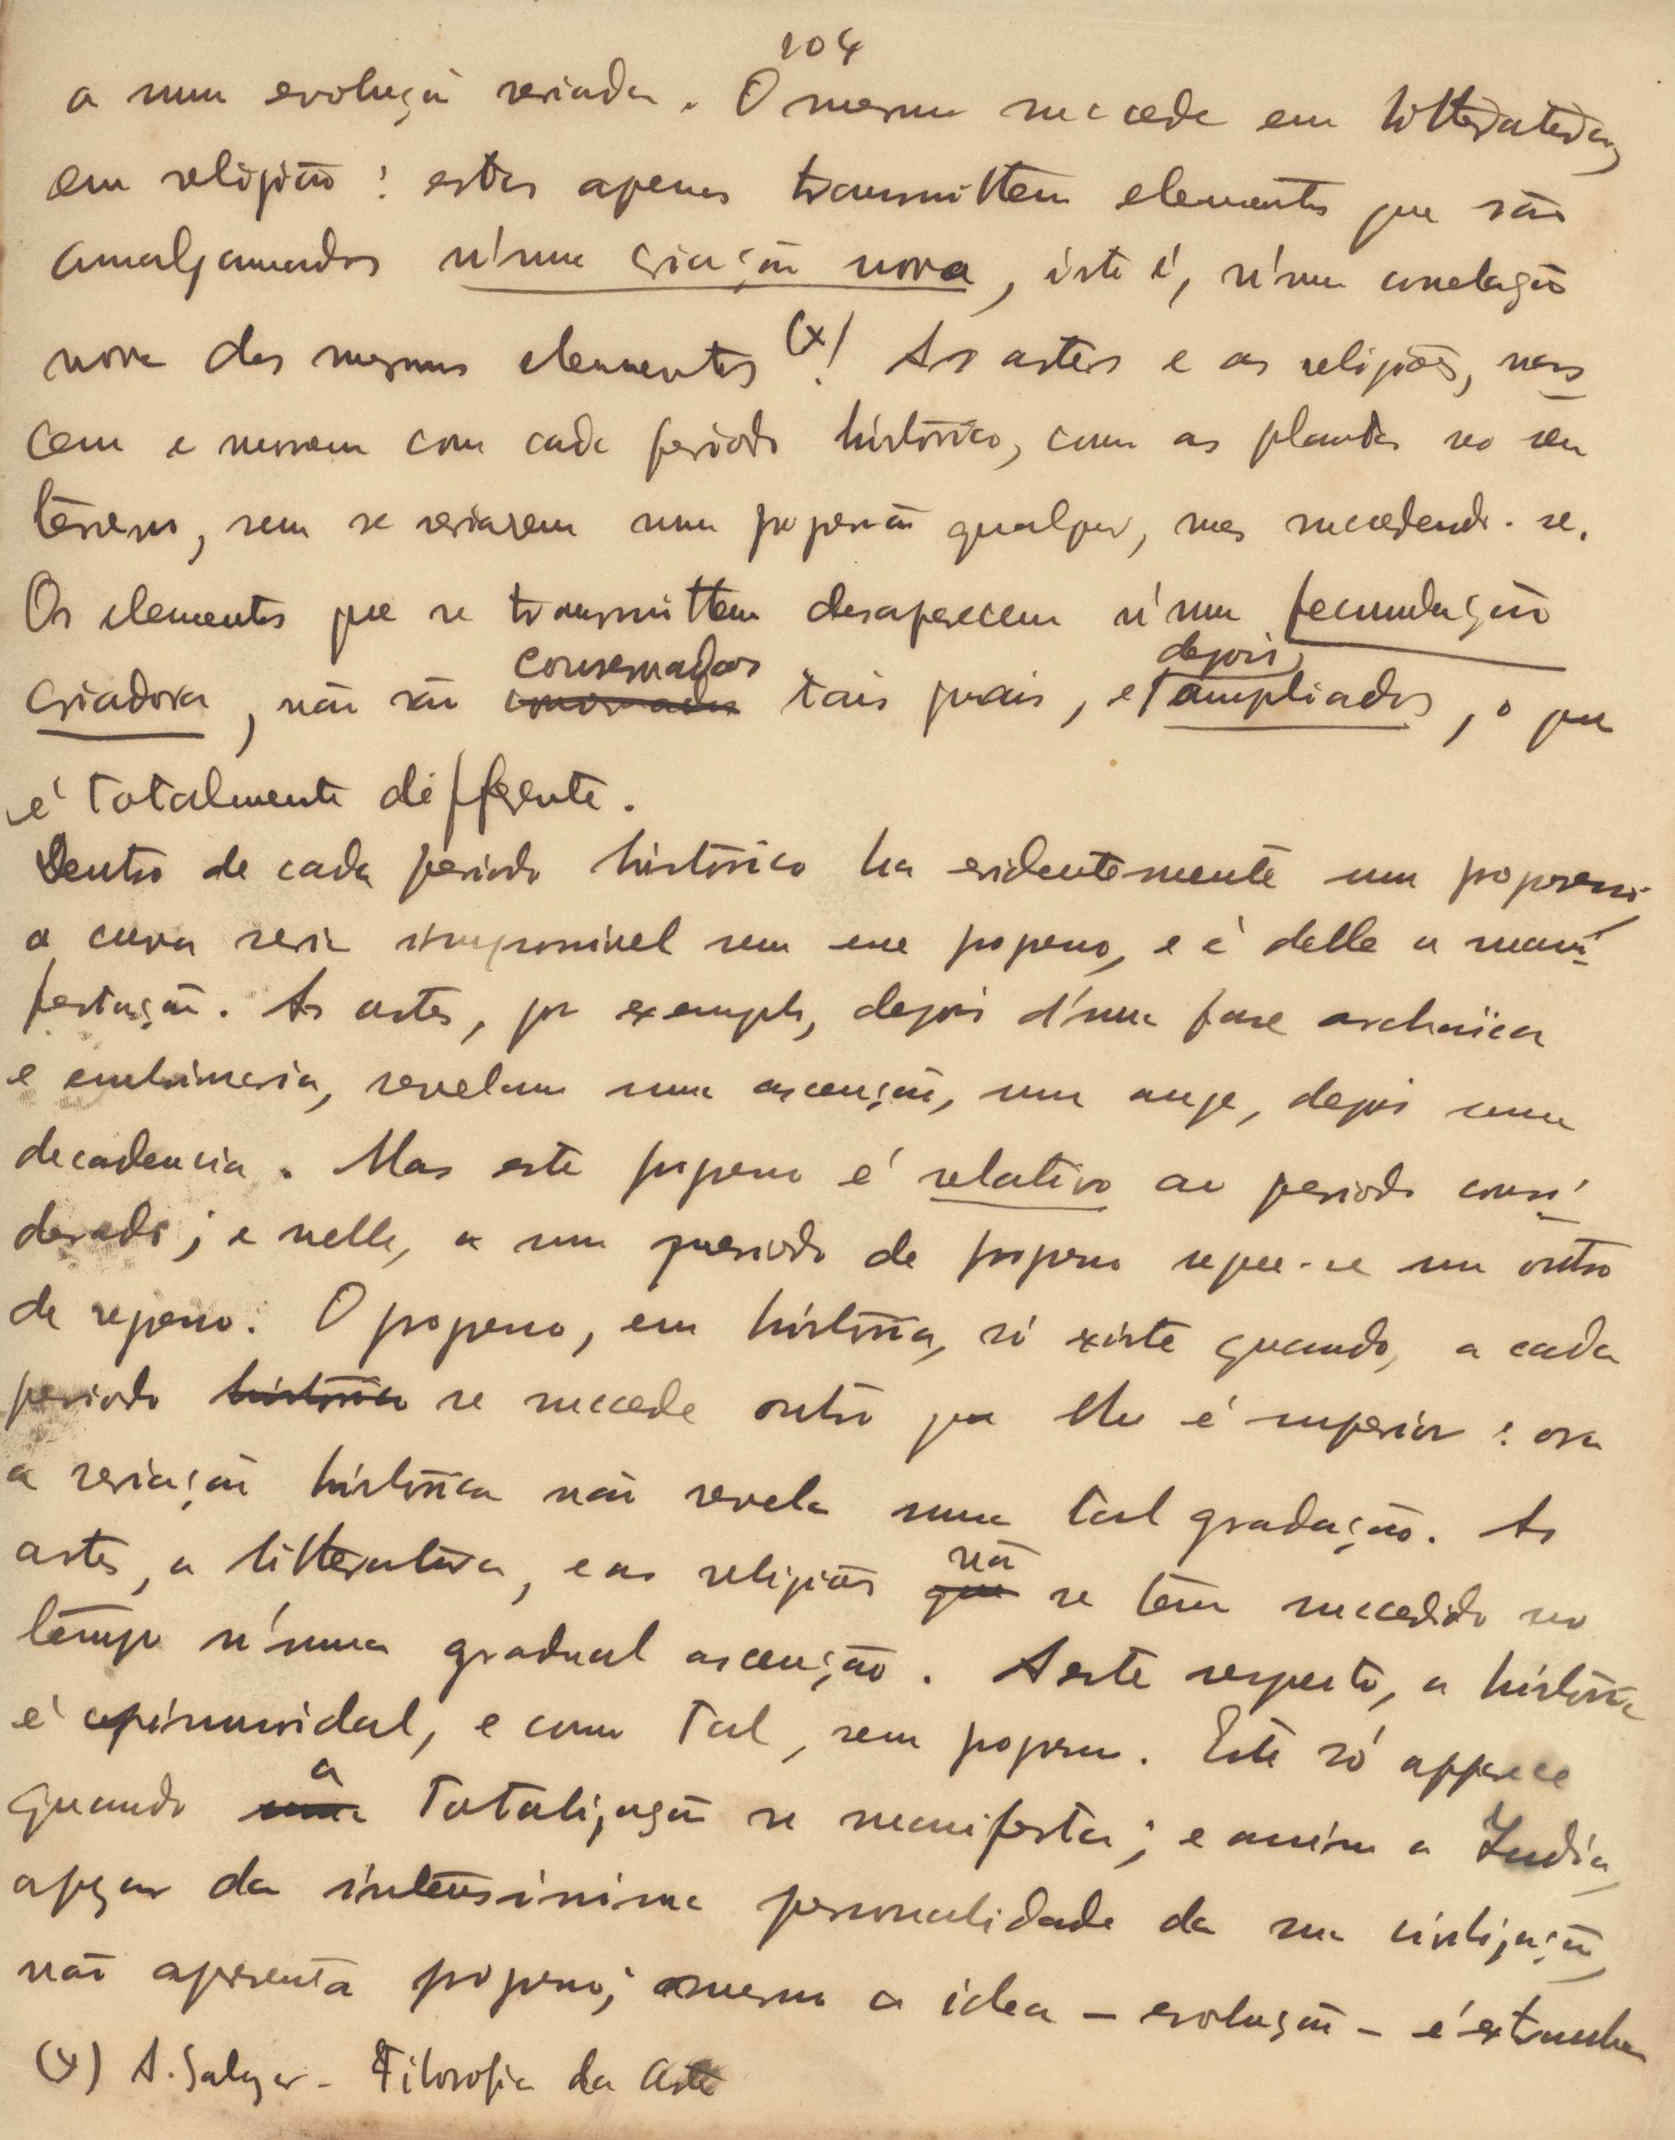 104
a uma evolução seriada. O mesmo succede em litteratura,
em religião: estas apenas transmittem elementos que são
amalgamados n'uma criação nova, isto é, n'uma correlação
nova dos mesmos elementos (x)! As artes e as religiões, nas
cem e morrem com cada periodo histórico, como as plantas no seu
terreno, sem se seriarem num progresso qualquer, mas succedendo-se.
Os elementos que se transmittem desaparecem n'uma fecundação
conservados depois
criadora, não são conservados tais quais, e ampliados, o que
é totalmente differente.
Dentro de cada periodo histórico ha evidentemente um progresso.
a curva seria impossivel sem esse progresso, e é delle a mani-
festação. As artes, por exemplo, depois d'uma fase archaica
e embrionaria, revelam uma ascenção, um auge, depois uma
decadencia. Mas este progresso é relativo ao periodo consi-
derado; e nelle, a um periodo de progresso segue-se um outro
de regresso. O progresso, em história, só existe quando, a cada
periodo história se succede outro que lhe é superior: ora
a seriação histórica não revela uma tal gradação. As
não
artes, a litteratura, e as religiões que se têm succedido no
tempo n'uma gradual ascenção. A este respeito, a história
é apiramidal, e como tal, sem progresso. Este só apparece
a
quando uma totalização se manifesta; e assim a India,
apezar da intensissima personalidade da sua civilização,
não apresenta progresso; mesmo a idea – evolução – é extranha
(x) A. Salazar - Filosofia da Arte